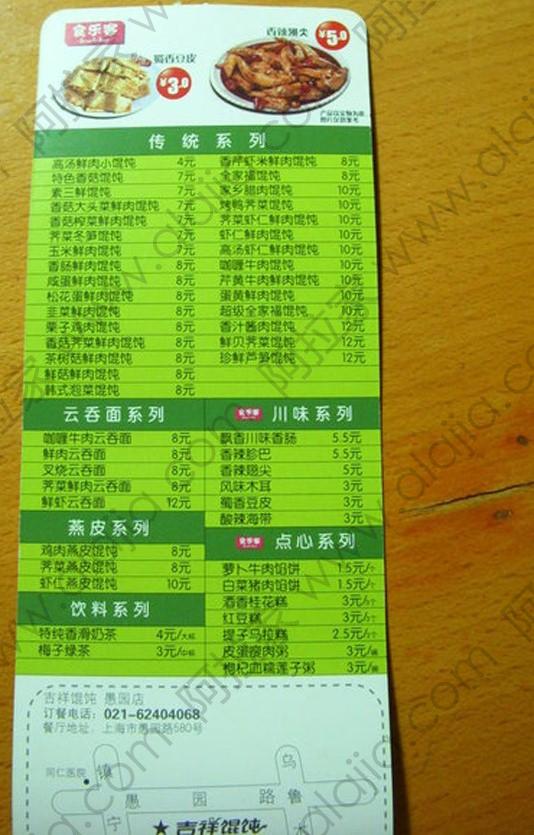 食乐客
蜀香豆皮
¥3.0
香辣翅尖
¥5.0
传统系列
高汤鲜肉小馄饨 4元
特色香菇馄饨 7元
素三鲜馄饨 7元
香菇大头菜鲜肉馄饨 7元
香菇榨菜鲜肉馄饨 7元
荠菜冬笋馄饨 7元
玉米鲜肉馄饨 7元
香肠鲜肉馄饨 8元
咸蛋鲜肉馄饨 8元
松花蛋鲜肉馄饨 8元
韭菜鲜肉馄饨 8元
栗子鸡肉馄饨 8元
香菇荠菜鲜肉馄饨 8元
茶树菇鲜肉馄饨 8元
鲜菇鲜肉馄饨 8元
韩式泡菜馄饨 8元
香芹虾米鲜肉馄饨 8元
全家福馄饨 8元
家乡腊肉馄饨 10元
烤鸭荠菜馄饨 10元
荠菜虾仁鲜肉馄饨 10元
虾仁鲜肉馄饨 10元
高汤虾仁鲜肉馄饨 10元
咖喱牛肉馄饨 10元
芹黄牛肉鲜肉馄饨 10元
蛋黄鲜肉馄饨 10元
超级全家福馄饨 10元
香汁酱肉馄饨 12元
鲜贝荠菜馄饨 12元
珍鲜芦笋馄饨 12元
云吞面系列
咖喱牛肉云吞面 8元
鲜肉云吞面 8元
叉烧云吞面 8元
荠菜鲜肉云吞面 8元
鲜虾云吞面 12元
燕皮系列
鸡肉燕皮馄饨 8元
荠菜燕皮馄饨 8元
虾仁燕皮馄饨 10元
饮料系列
特纯香滑奶茶 4元/大杯
梅子绿茶 3元/中杯
食乐客 川味系列
飘香川味香肠 5.5元
香辣胗巴 5.5元
香辣翅尖 5元
风味木耳 3元
蜀香豆皮 3元
酸辣海带 3元
食乐客 点心系列
萝卜牛肉馅饼 1.5元/个
白菜猪肉馅饼 1.5元/个
酒香桂花糕 3元/5个
红豆糕 3元/5个
提子马拉糕 2.5元/个
皮蛋瘦肉粥 3元/碗
枸杞血糯莲子粥 3元/碗
吉祥馄饨 愚园店
订餐电话：021-62404068
餐厅地址：上海市愚园路580号
同仁医院
镇
宁
愚园路
乌
鲁
木
★吉祥馄饨
阿拉家 www.alajia.com